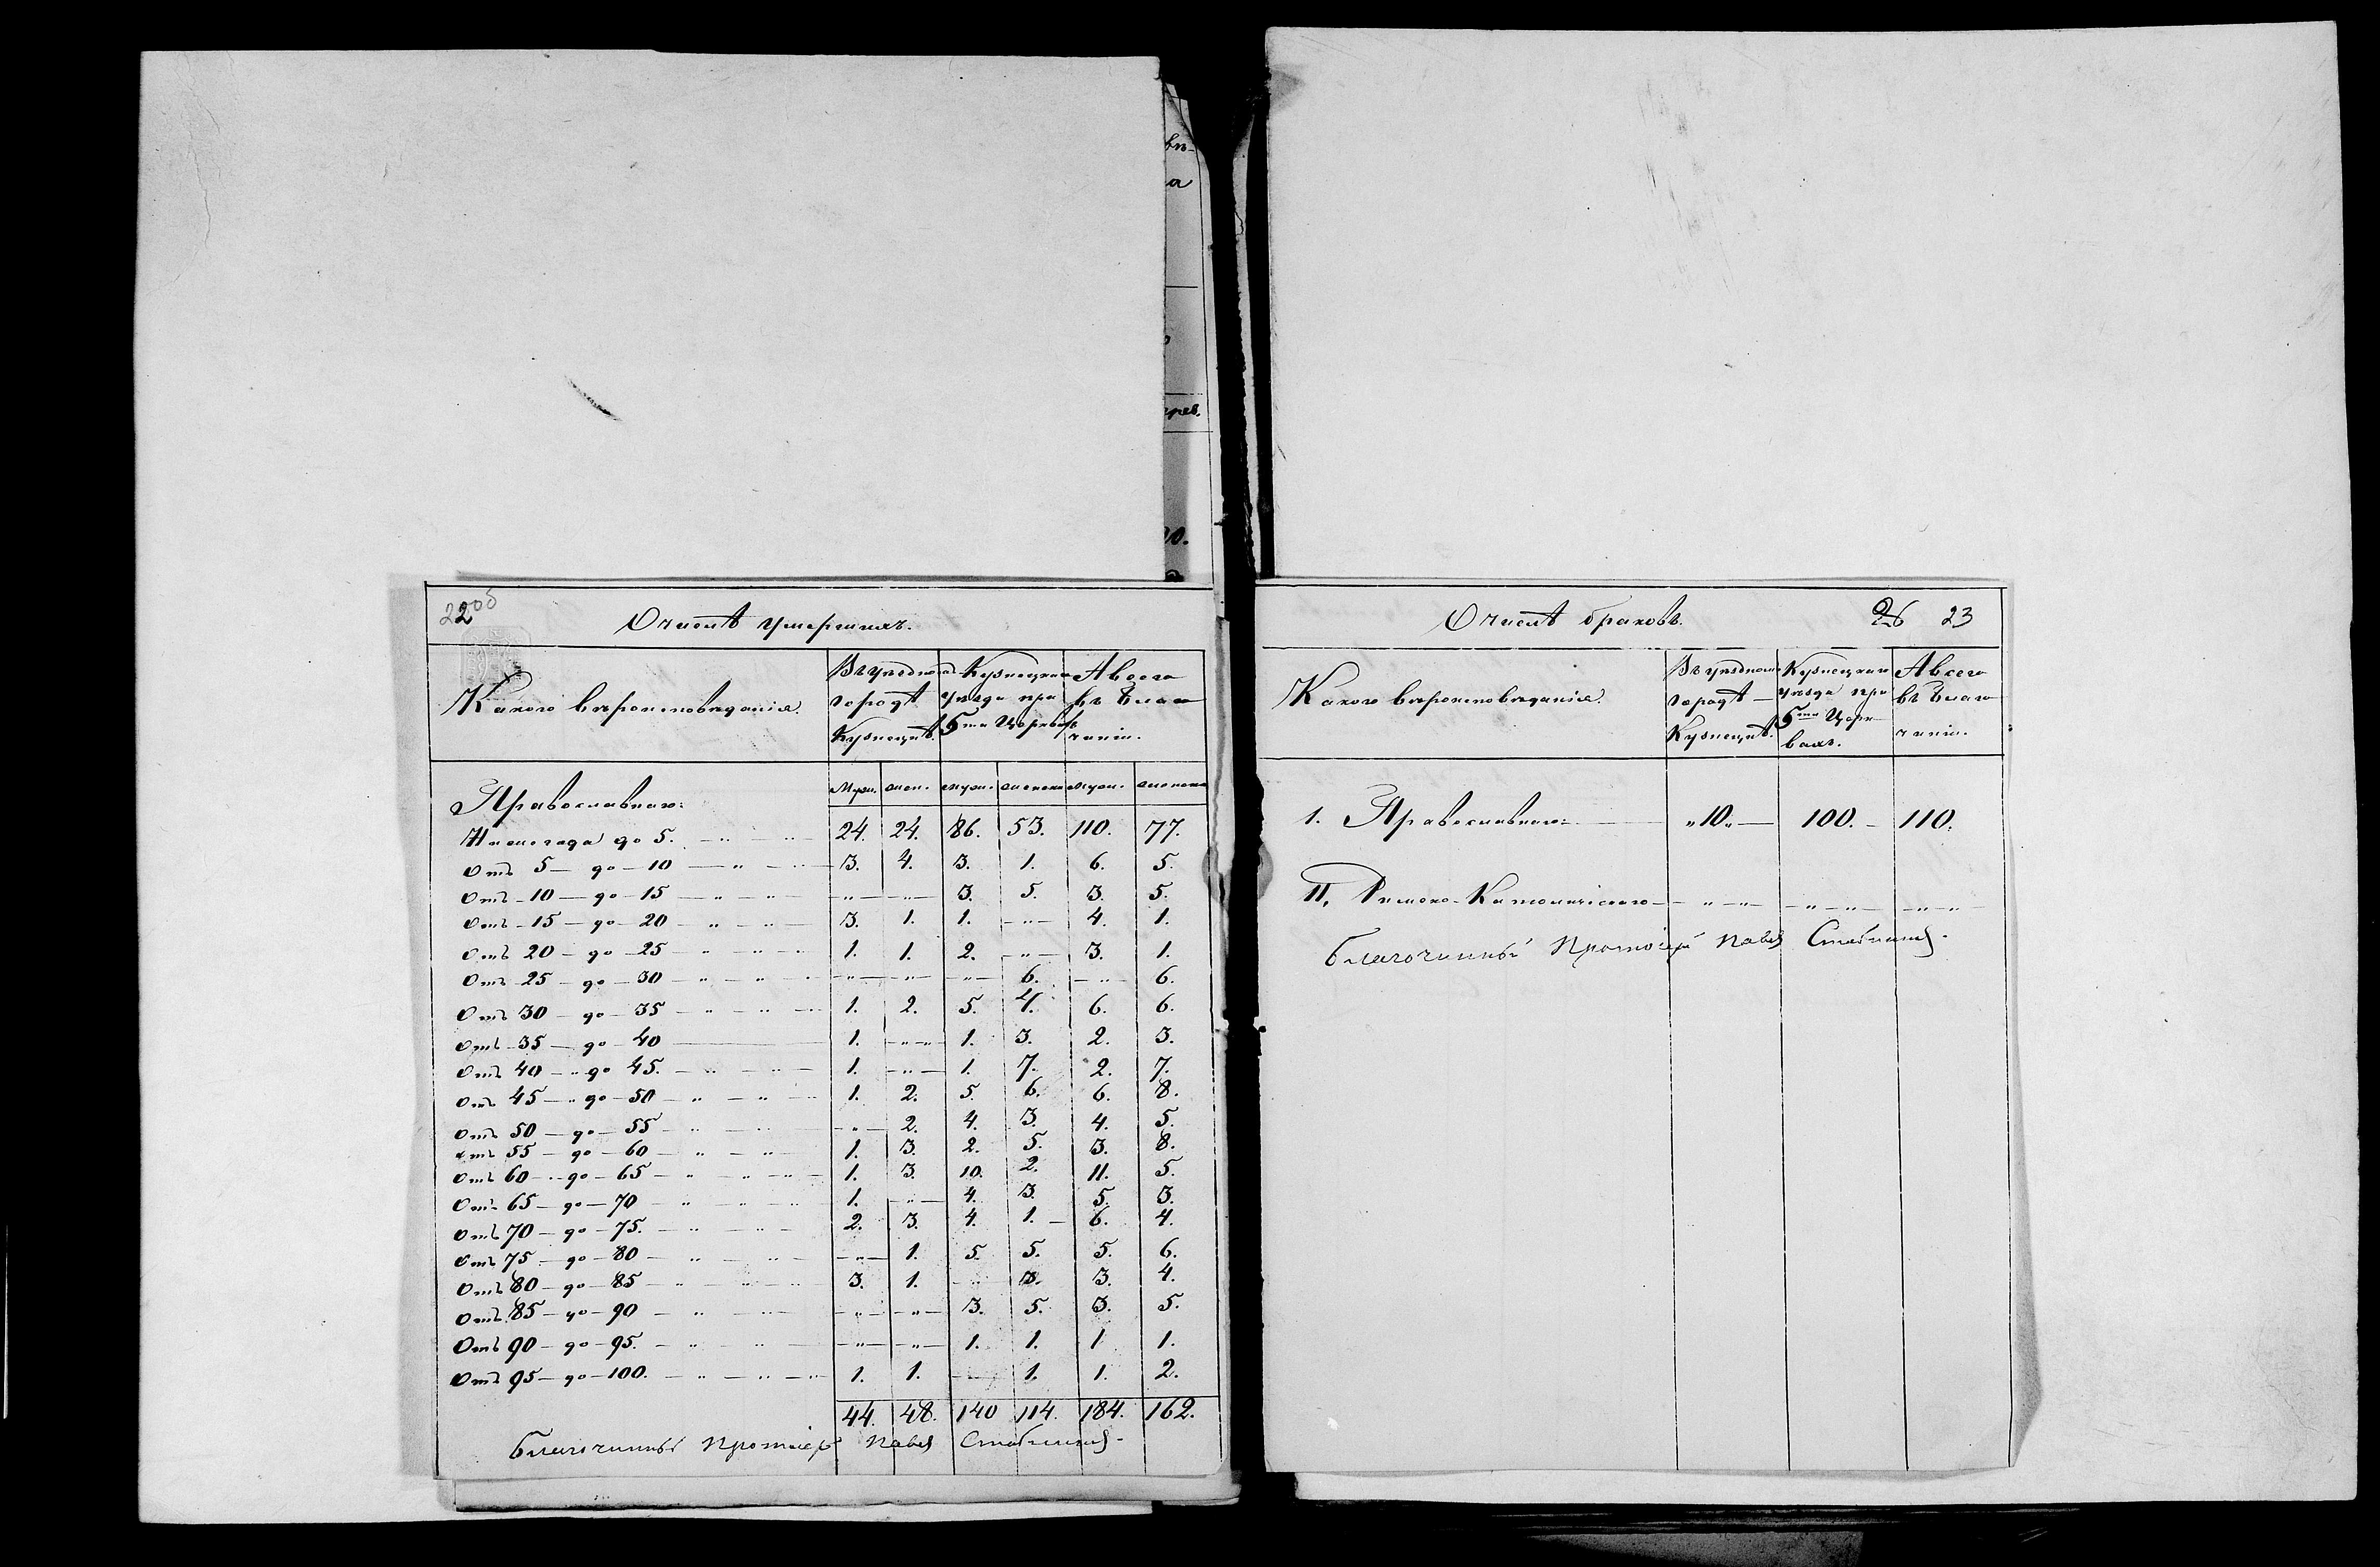 22об
О числѣ умершихъ.
Какого вѣроисповѣданія. Въ уѣздномъ городѣ Кузнецкѣ. Кузнецкаго уѣзда при 5ти Церквахъ А всего въ благочиніи.
Православнаго: Муж. жен. муж. женска муж. женска
до 5. 24. 24. 86. 53. 110. 77.
Отъ 5 — до — 10 — „ — „ — 3. 4. 3. 1. 6. 5.
Отъ — 10 — до — 15 — „ — „ — „ — „ — 3. 5. 3. 5.
Отъ — 15 — до — 20 — „ — „ — 3. 1. 1. — „ — 4. 1.
Отъ 20 — до — 25 — „ — „ — 1. 1. 2. — „ — 3. 1.
Отъ 25 — до — 30 — „ — „ — „ — „ — „ — 6. — „ — 6.
Отъ 30 — до — 35 — „ — „ — 1. 2. 5. 4. 6. 6.
Отъ — 35 — до — 40 — 1. — „ — 1. 3. 2. 3.
Отъ 40 — до 45. — „ — „ — 1. — „ — 1. 7. 2. 7.
Отъ 45 — до — 50 — „ — „ — 1. 2. 5. 6. 6. 8.
Отъ 50 — до — 55 — „ — „ — „ — 2. 4. 3. 4. 5.
Отъ 55 — до — 60 — „ — „ — 1. 3. 2. 5. 3. 8.
Отъ 60 — до — 65 — „ — „ — 1. 3. 10. 2. 11. 5.
Отъ 65 — до — 70 — „ — „ — 1. — „ — 4. 3. 5. 3.
Отъ 70 — до — 75. — „ — „ — 2. 3. 4. 1. — 6. 4.
Отъ 75 — до — 80 — „ — „ — „ — 1. 5. 5. 5. 6.
Отъ 80 — до — 85 — „ — „ — 3. 1. — „ — 3. 3. 4.
Отъ 85 — до — 90 — „ — „ — „ — „ — 3. 5. 3. 5.
Отъ 90 — до — 95. — „ — „ — „ — „ — 1. 1. 1 1.
Отъ 95 — до — 100. — „ — „ — 1. 1. — 1. 1. 2.
44. 48. 140 114. 184. 162.
Благочинный Протоіерей Павелъ
О числѣ браковъ. 26 23
Какого вѣроисповѣданія. Въ уѣздномъ городѣ — Кузнецкѣ. Кузнецкаго уѣзда при 5ти Церквахъ. А всего въ благочиніи.
1. Православнаго: — „10„ — 100. — 110.
II. Римско-Католическаго — „ — „ — „ — „ — „ — „ —
Благочинный Протоіерей Павелъ